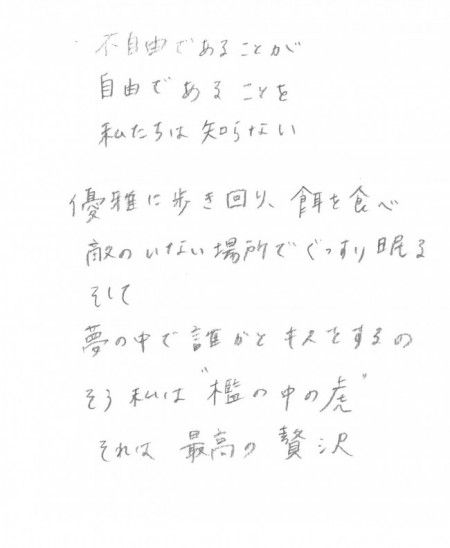 不自由であることが
自由であることを
私たちは知らない
優雅に歩き回り、餌を食べ
敵のいない場所でぐっすり眠る
そして
夢の中で誰かとキスをするの
そう私は"檻の中の虎"
それは最高の贅沢